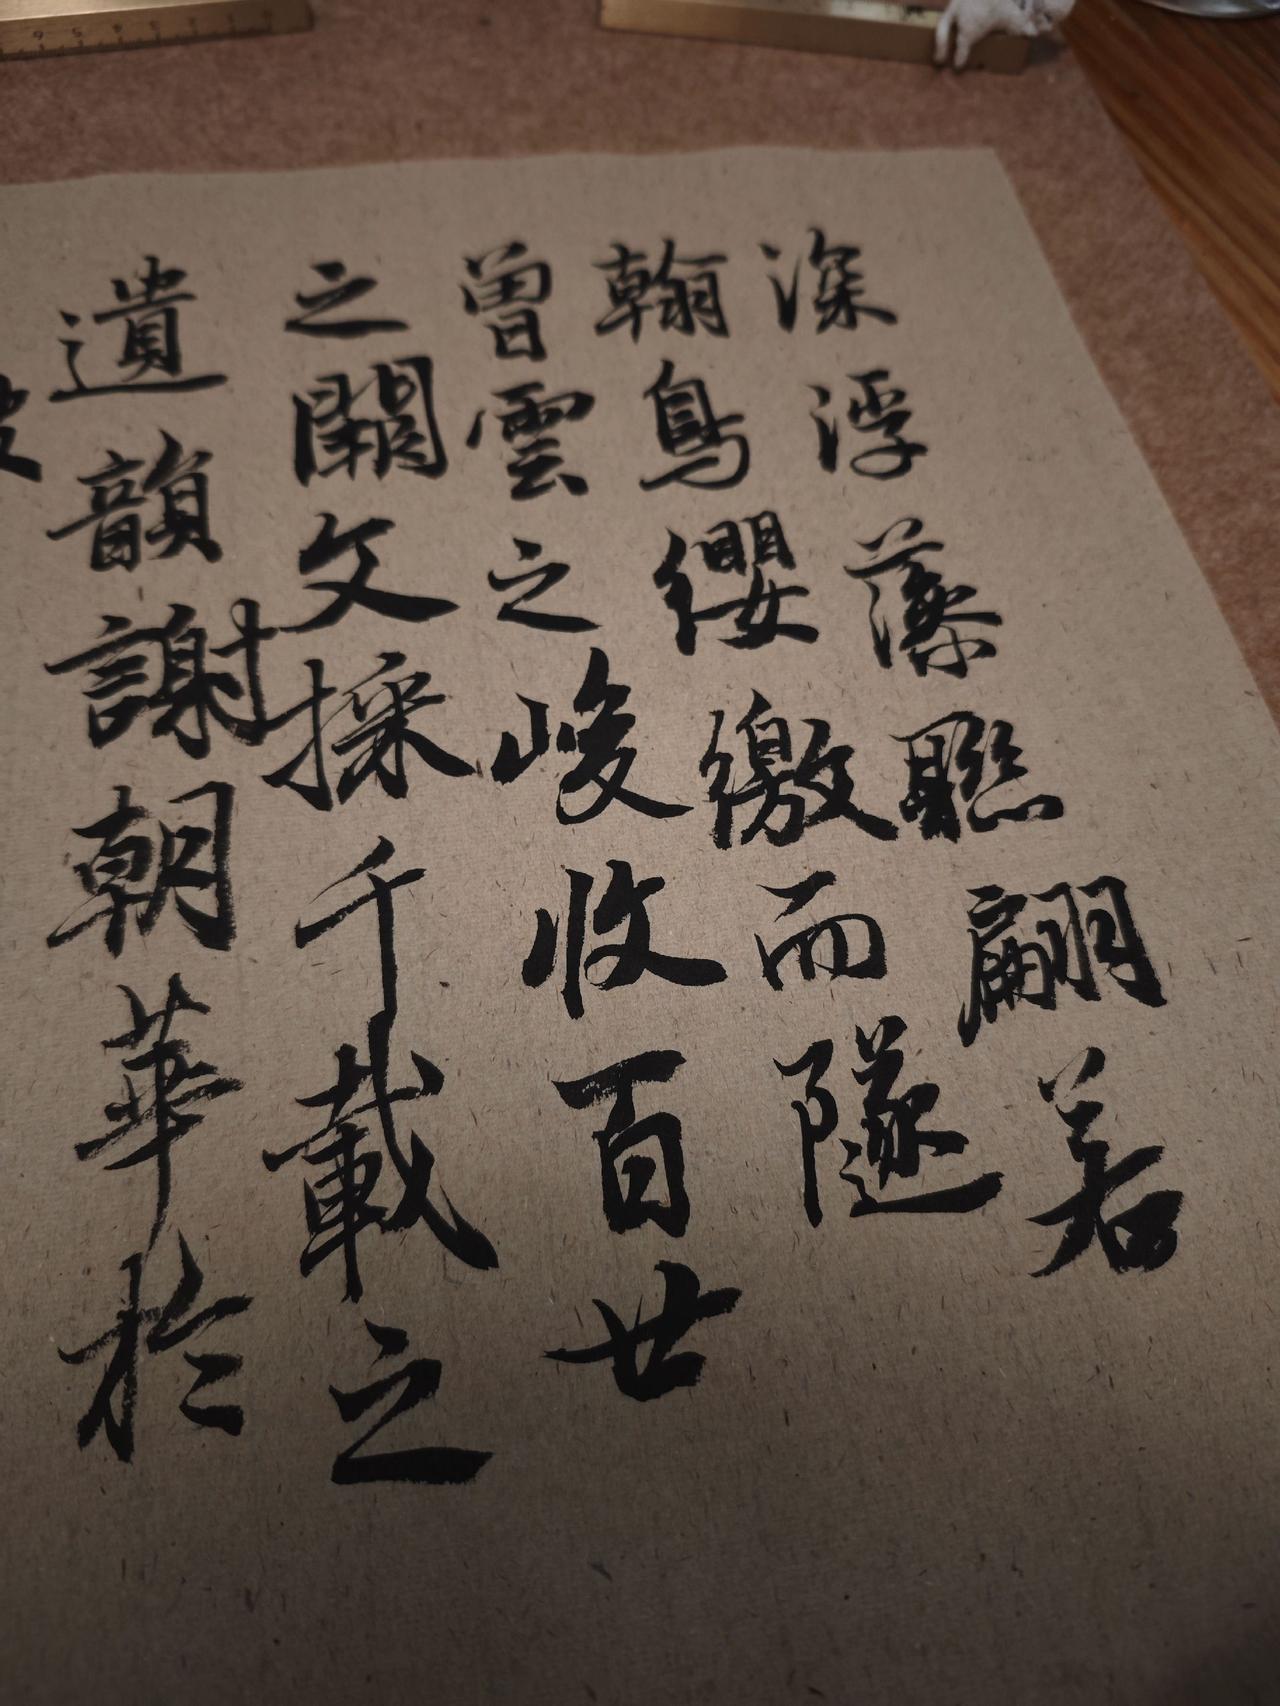 深浮藻聯翩若
翰鳥纓繳而墜
曾雲之峻收百世
之闕文採千載之
遺韻謝朝華於
披